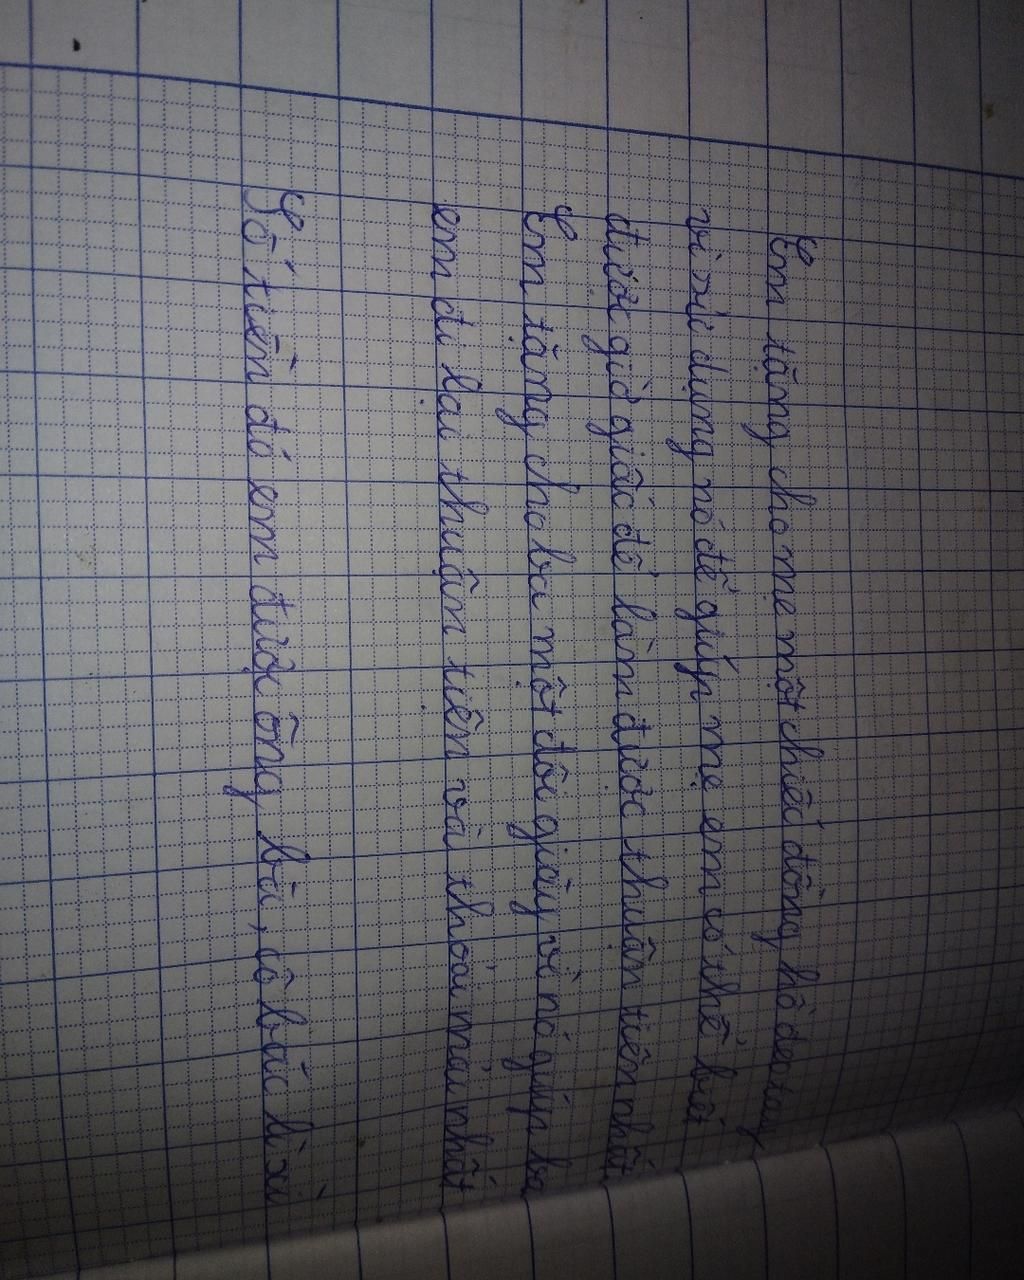 Em tặng cho mẹ một chiếc đồng hồ đeo tay
vì sử dụng nó để giúp mẹ em có thể biết
được giờ giấc để làm được thuận tiện nhất
Em tặng cho ba một đôi giày vì nó giúp ba
em đi lại thuận tiện và thoải mái nhất
Số tiền đó em được ông bà, cô bác lì xì